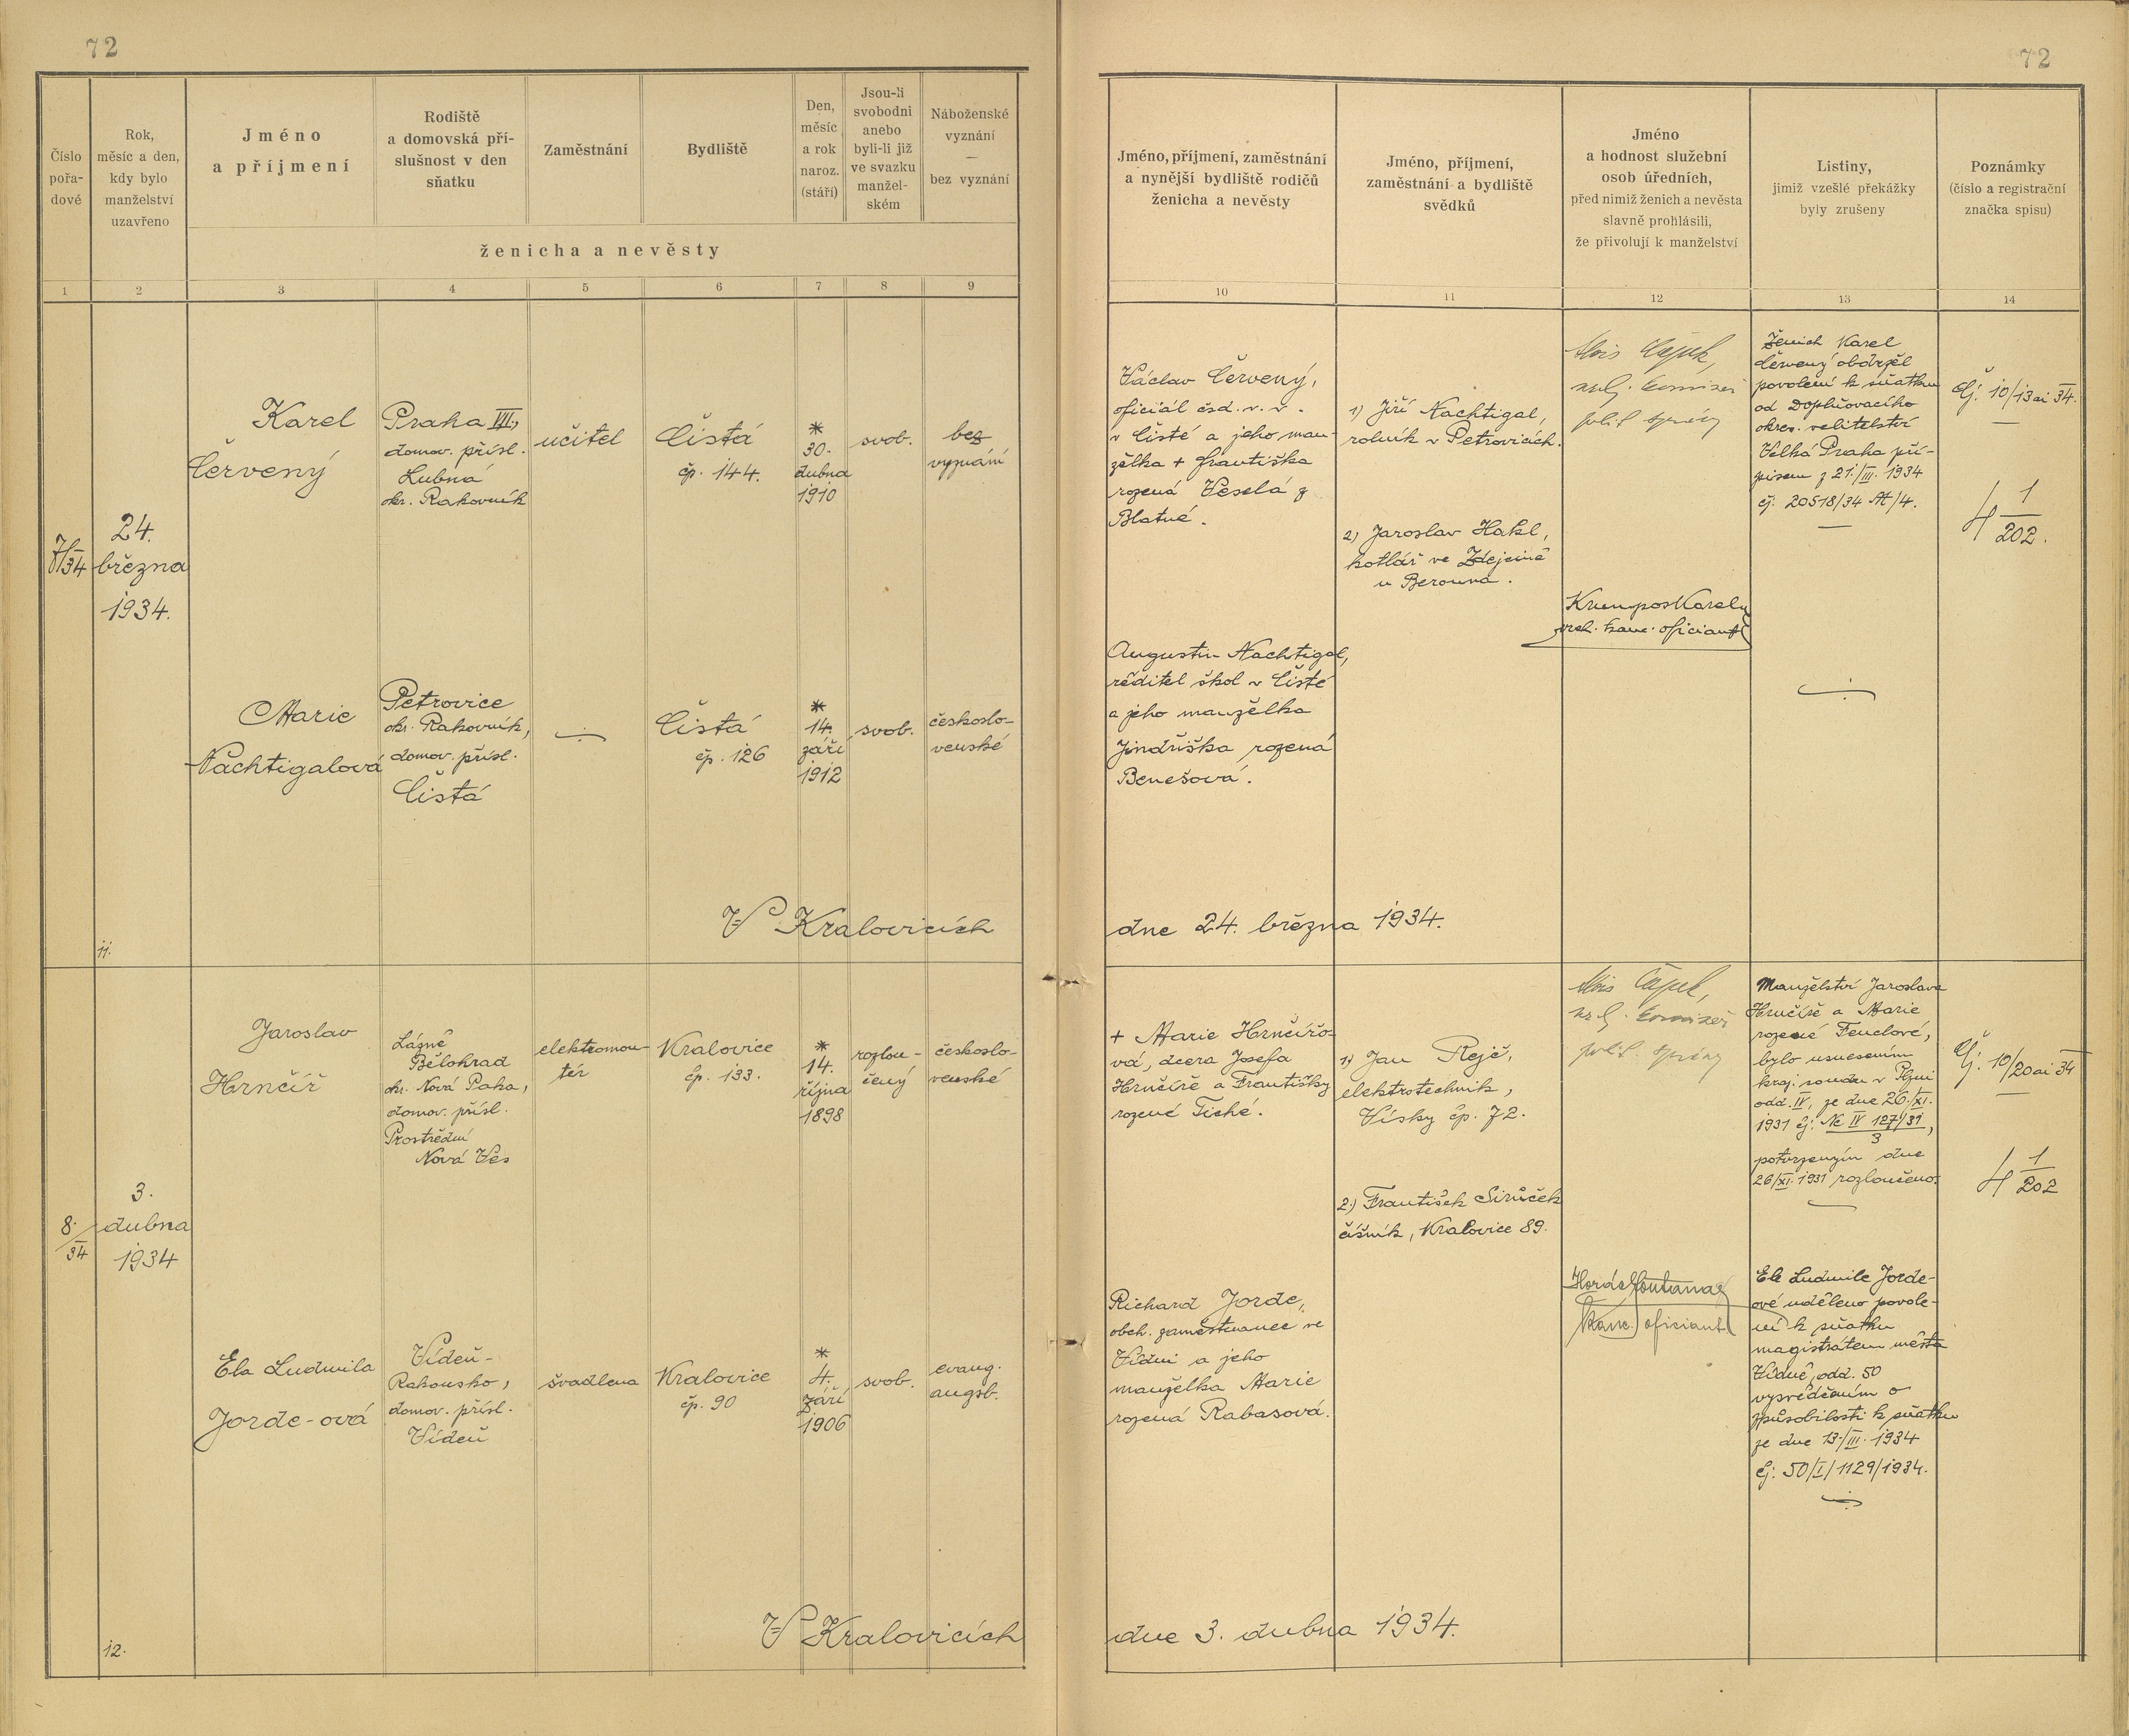 72
72
Číslo
pořa-
dové
Rok,
měsíc a den,
kdy bylo
manželství
uzavřeno
Jméno
a příjmení
Rodiště
a domovská pří-
slušnost v den
sňatku
Zaměstnání
Bydliště
Den,
měsíc
a rok
naroz.
(stáří)
Jsou-li
svobodni
anebo
byli-li již
ve svazku
manžel-
ském
Náboženské
vyznání
—
bez vyznání
ženicha a nevěsty
Jméno, příjmení, zaměstnání
a nynější bydliště rodičů
ženicha a nevěsty
Jméno, příjmení,
zaměstnání a bydliště
svědků
Jméno
a hodnost služební
osob úředních,
před nimiž ženich a nevěsta
slavně prohlásili,
že přivolují k manželství
Listiny,
jimiž vzešlé překážky
byly zrušeny
Poznámky
(číslo a registrační
značka spisu)
1 2 3 4 5 6 7 8 9 10 11 12 13 14
7/34
24.
března
1934.
Karel
Červený
Praha VII.,
domov. přísl.
Lubná
okr. Rakovník
učitel
Čistá
čp. 144.
*
30.
dubna
1910
svob.
bez
vyznání
Václav Červený,
oficiál čsd. v. v.
v Čisté a jeho man-
želka + Františka
rozená Veselá z
Blatné.
1) Jiří Nachtigal,
rolník v Petrovicích.
2) Jaroslav Hakl,
kotlář ve Zdejcině
u Berouna.
Alois Čapek,
komisař
polit. správy
Krumpos Karel
vrch. kanc. oficiant
Ženich Karel
Červený obdržel
povolení k sňatku
od Doplňovacího
okres. velitelství
Velká Praha pří-
pisem z 21./III. 1934
čj. 20518/34 At/4.
Čj. 10/13 ai 34.
4 1/202.
Marie
Nachtigalová
Petrovice
okr. Rakovník,
domov. přísl.
Čistá
Čistá
čp. 126
*
14.
září
1912
svob.
českoslo-
venské
Augustin Nachtigal,
ředitel škol v Čisté
a jeho manželka
Jindřiška rozená
Benešová.
11.
V Kralovicích
dne 24. března 1934.
8./34
3.
dubna
1934
Jaroslav
Hrnčíř
Lázně
Bělohrad
okr. Nová Paka,
domov. přísl.
Prostřední
Nová Ves
elektromon-
tér
Kralovice
čp. 133.
*
14.
října
1898
rozlou-
čený
českoslo-
venské
+ Marie Hrnčířo-
vá, dcera Josefa
Hrnčíře a Františky
rozené Tiché.
1) Jan Rejč,
elektrotechnik,
Vísky čp. 72.
2.) František Sirůček
číšník, Kralovice 89.
Alois Čapek,
komisař
polit. správy
kanc. oficiant
Manželství Jaroslava
Hrnčíře a Marie
rozené Fenclové,
bylo usnesením
kraj. soudu v Plzni
odd. IV, ze dne 26./XI.
1931 čj. Nc IV 127/31,
3
potvrzeným dne
26/XI. 1931 rozloučeno.
Čj. 10/20 ai 34
4 1/202
Ela Ludmila
Jorde-ová
Vídeň-
Rakousko,
domov. přísl.
Vídeň
švadlena
Kralovice
čp. 90
*
4.
září
1906
svob.
evang.
augsb.
Richard Jorde,
obch. zaměstnanec ve
Vídni a jeho
manželka Marie
rozená Rabasová.
Ele Ludmile Jorde-
ové uděleno povole-
ní k sňatku
magistrátem města
Vídně, odd. 50
vysvědčením o
způsobilosti k sňatku
ze dne 13./III. 1934
čj. 50/I/1129/1934.
12.
V Kralovicích
dne 3. dubna 1934.